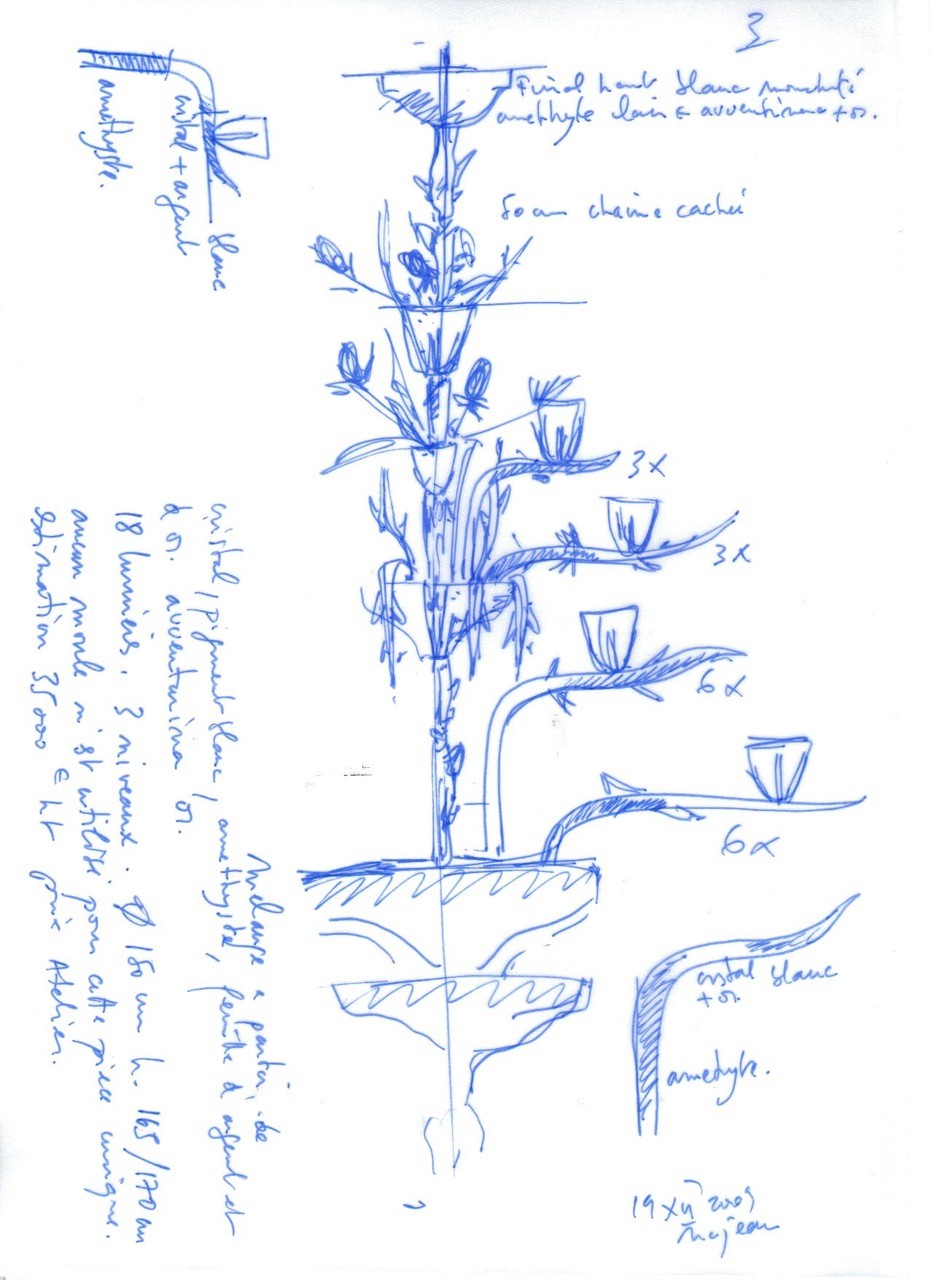 3
Final haut blanc
amethyste clair + avventurina + or.
50 cm chaine caché
amethyste.
cristal + argent
blanc
3x
3x
6x
6x
cristal blanc
+ or.
amethyste.
Melange a partir de
cristal, pigment blanc, amethyste, feuille d'argent et
d'or. avventurina or.
18 lumières. 3 niveaux. Ø 150 cm h. 165/170 cm
aucun moule n'est utilisé pour cette pièce unique.
estimation 35000 € ht prix Atelier.
19 XII 2009